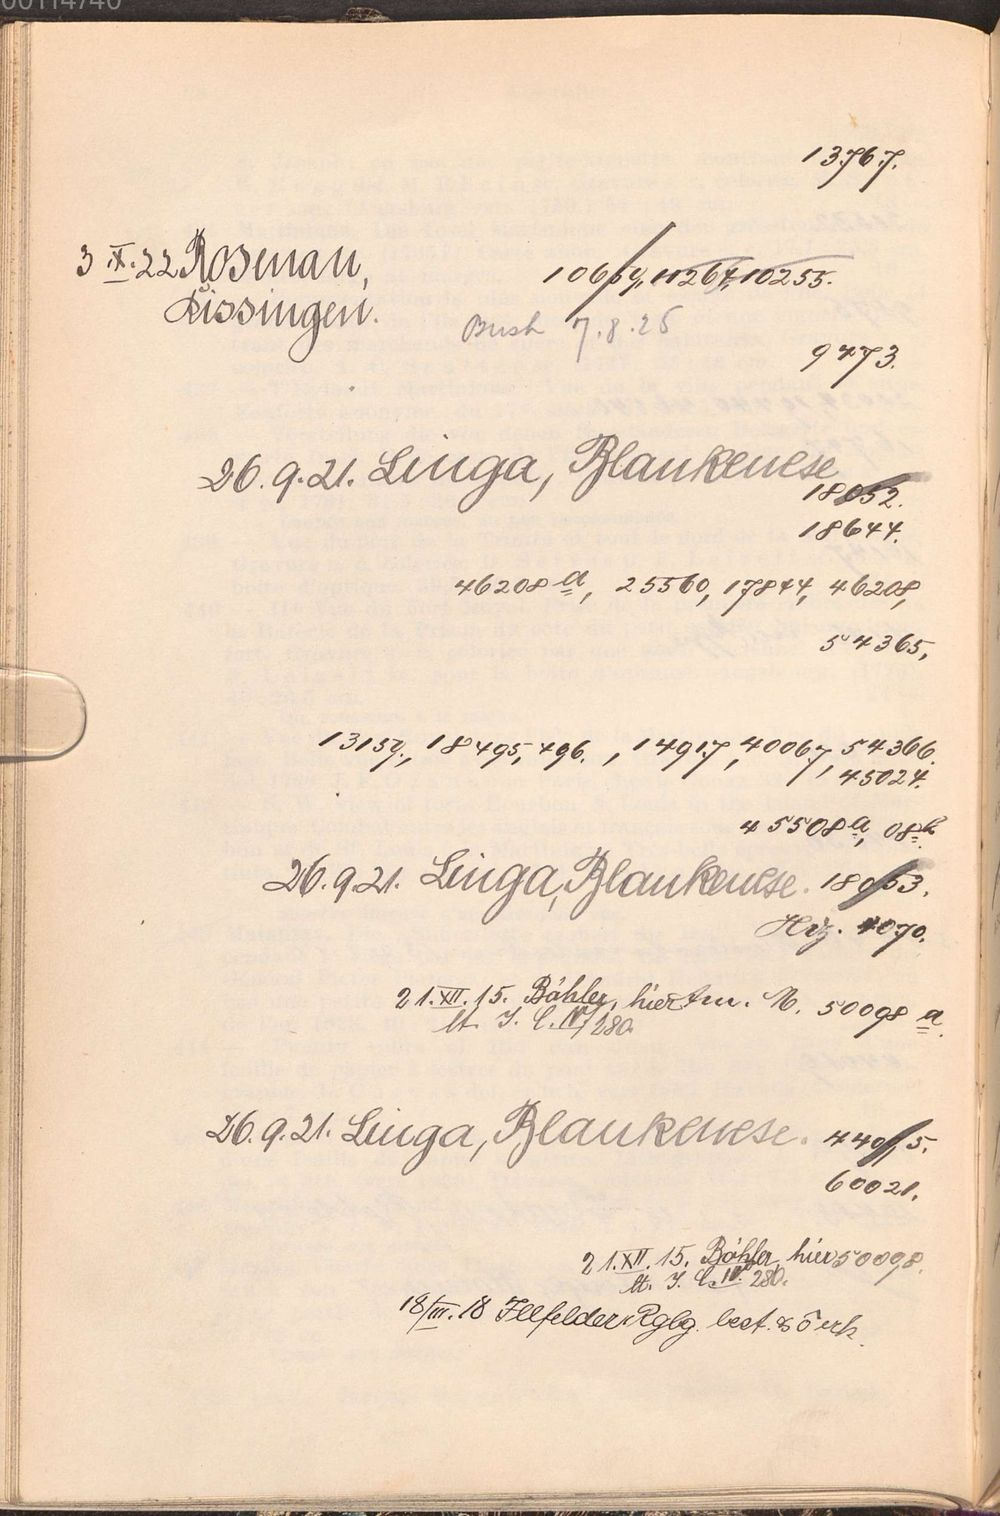 00114740
13767.
3 IX. 22 Rosenau, 10664, 10264, 10255.
Kissingen.
7.8.25
9473.
26.9.21. Linga, Blankenese
18052.
18644.
46208 a, 25560, 17844, 46208,
54365,
13159., 18495, 496., 14917, 40067, 54366.
45024.
45508 a, 08 b.
26.9.21. Linga, Blankenese. 18053.
4070.
21.XII.15. Böhler, hier 50098 a.
lt. J. C. IV/280.
26.9.21. Linga, Blankenese. 44015.
60021.
21.XII.15. Böhler, hier 50098.
lt. J. C. IV. 280.
18/III.18 Illfelder Rgbg. best.